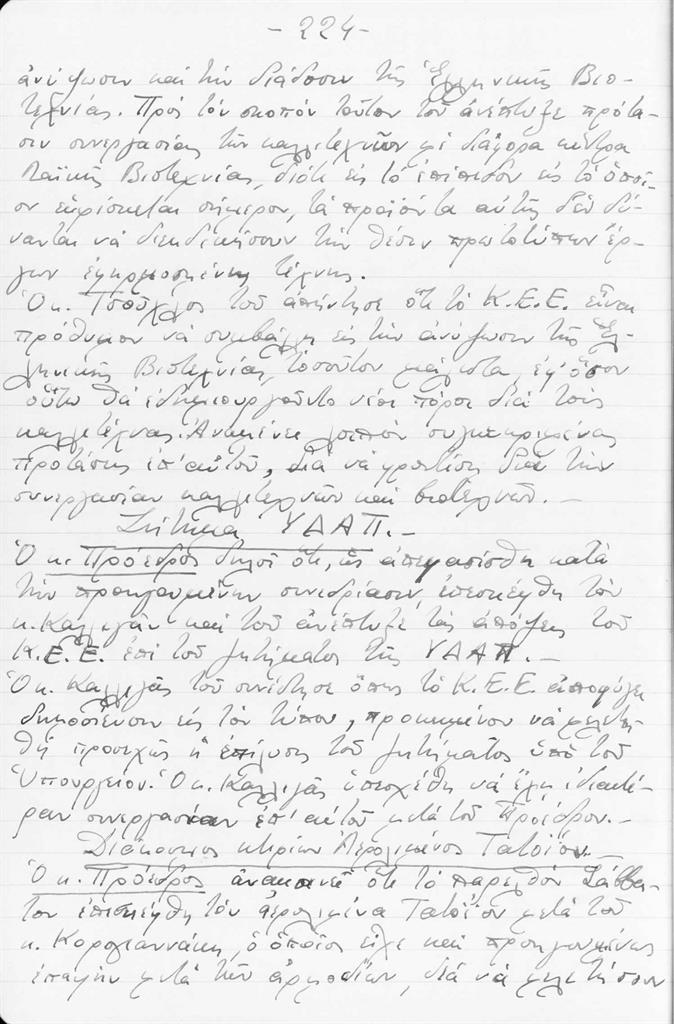 - 224 -
ἀνύψωσιν καὶ τὴν διάδοσιν τῆς Ἑλληνικῆς Βιο-
τεχνίας. Πρὸς τὸν σκοπὸν τοῦτον τοῦ ἀνέπτυξε πρότα-
σιν συνεργασίας τῶν καλλιτεχνῶν μὲ διάφορα κέντρα
Λαϊκῆς Βιοτεχνίας, διότι εἰς τὸ ἐπίπεδον εἰς τὸ ὁποῖ-
ον εὑρίσκεται σήμερον, τὰ προϊόντα αὐτῆς δὲν δύ-
νανται νὰ διεκδικήσουν τὴν θέσιν πρωτοτύπων ἔρ-
γων ἐφηρμοσμένης τέχνης.
Ὁ κ. τοῦ ἀπήντησε ὅτι τὸ Κ.Ε.Ε. εἶναι
πρόθυμον νὰ συμβάλῃ εἰς τὴν ἀνύψωσιν τῆς Ἑλ-
ληνικῆς Βιοτεχνίας, τοσοῦτον μάλιστα, ἐφ' ὅσον
οὕτω θὰ ἐδημιουργοῦντο νέοι πόροι διὰ τοὺς
καλλιτέχνας. Ἀναμένει λοιπὸν συγκεκριμένας
προτάσεις ἐπ' αὐτοῦ, διὰ νὰ φροντίσῃ διὰ τὴν
συνεργασίαν καλλιτεχνῶν καὶ βιοτεχνῶν. -
Ζήτημα ΥΔΑΠ. -
Ὁ κ. Πρόεδρος δηλοῖ ὅτι, ὡς ἀπεφασίσθη κατὰ
τὴν προηγουμένην συνεδρίασιν, ἐπεσκέφθη τὸν
κ. Καλλιγᾶν καὶ τοῦ ἀνέπτυξε τὰς ἀπόψεις τοῦ
Κ.Ε.Ε. ἐπὶ τοῦ ζητήματος τῆς ΥΔΑΠ. -
Ὁ κ. Καλλιγᾶς τοῦ συνέστησε ὅπως τὸ Κ.Ε.Ε. ἀποφύγει
δημοσίευσιν εἰς τὸν τύπον, προκειμένου νὰ μελετη-
θῇ προσεχῶς ἡ ἐπίλυσις τοῦ ζητήματος ὑπὸ τοῦ
Ὑπουργείου. Ὁ κ. Καλλιγᾶς ὑπεσχέθη νὰ ἔχῃ ἰδιαιτέ-
ραν συνεργασίαν ἐπ' αὐτοῦ μετὰ τοῦ Προέδρου. -
Διάκοσμος κτιρίων Ἀερολιμένος Τατοΐου. -
Ὁ κ. Πρόεδρος ἀνακοινεῖ ὅτι τὸ παρελθὸν Σάββα-
τον ἐπεσκέφθη τὸν ἀερολιμένα Τατοΐου μετὰ τοῦ
κ. ὁ ὁποῖος εἶχε καὶ προηγουμένως
ἐπαφὴν μετὰ τῶν ἁρμοδίων, διὰ νὰ μελετήσουν